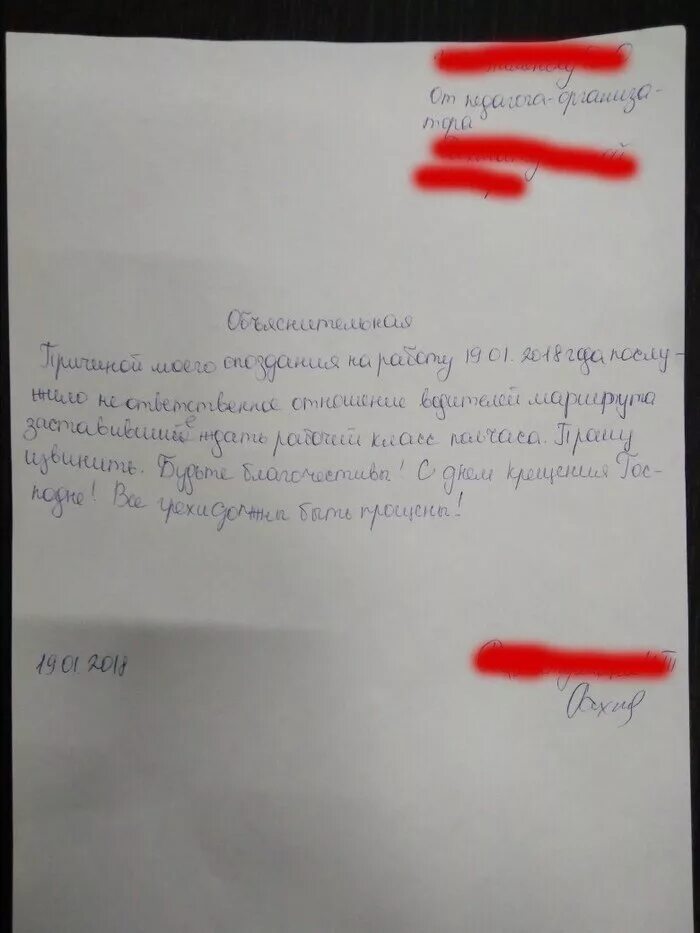 От педагога-организа-
тора
Объяснительная
Причиной моего опоздания на работу 19.01.2018 года послу-
жило не ответственное отношение водителей маршрута
заставивший е ждать рабочий класс полчаса. Прошу
извинить. Будьте благочестивы! С днем крещения Гос-
подне! Все грехи должны быть прощены!
19.01.2018